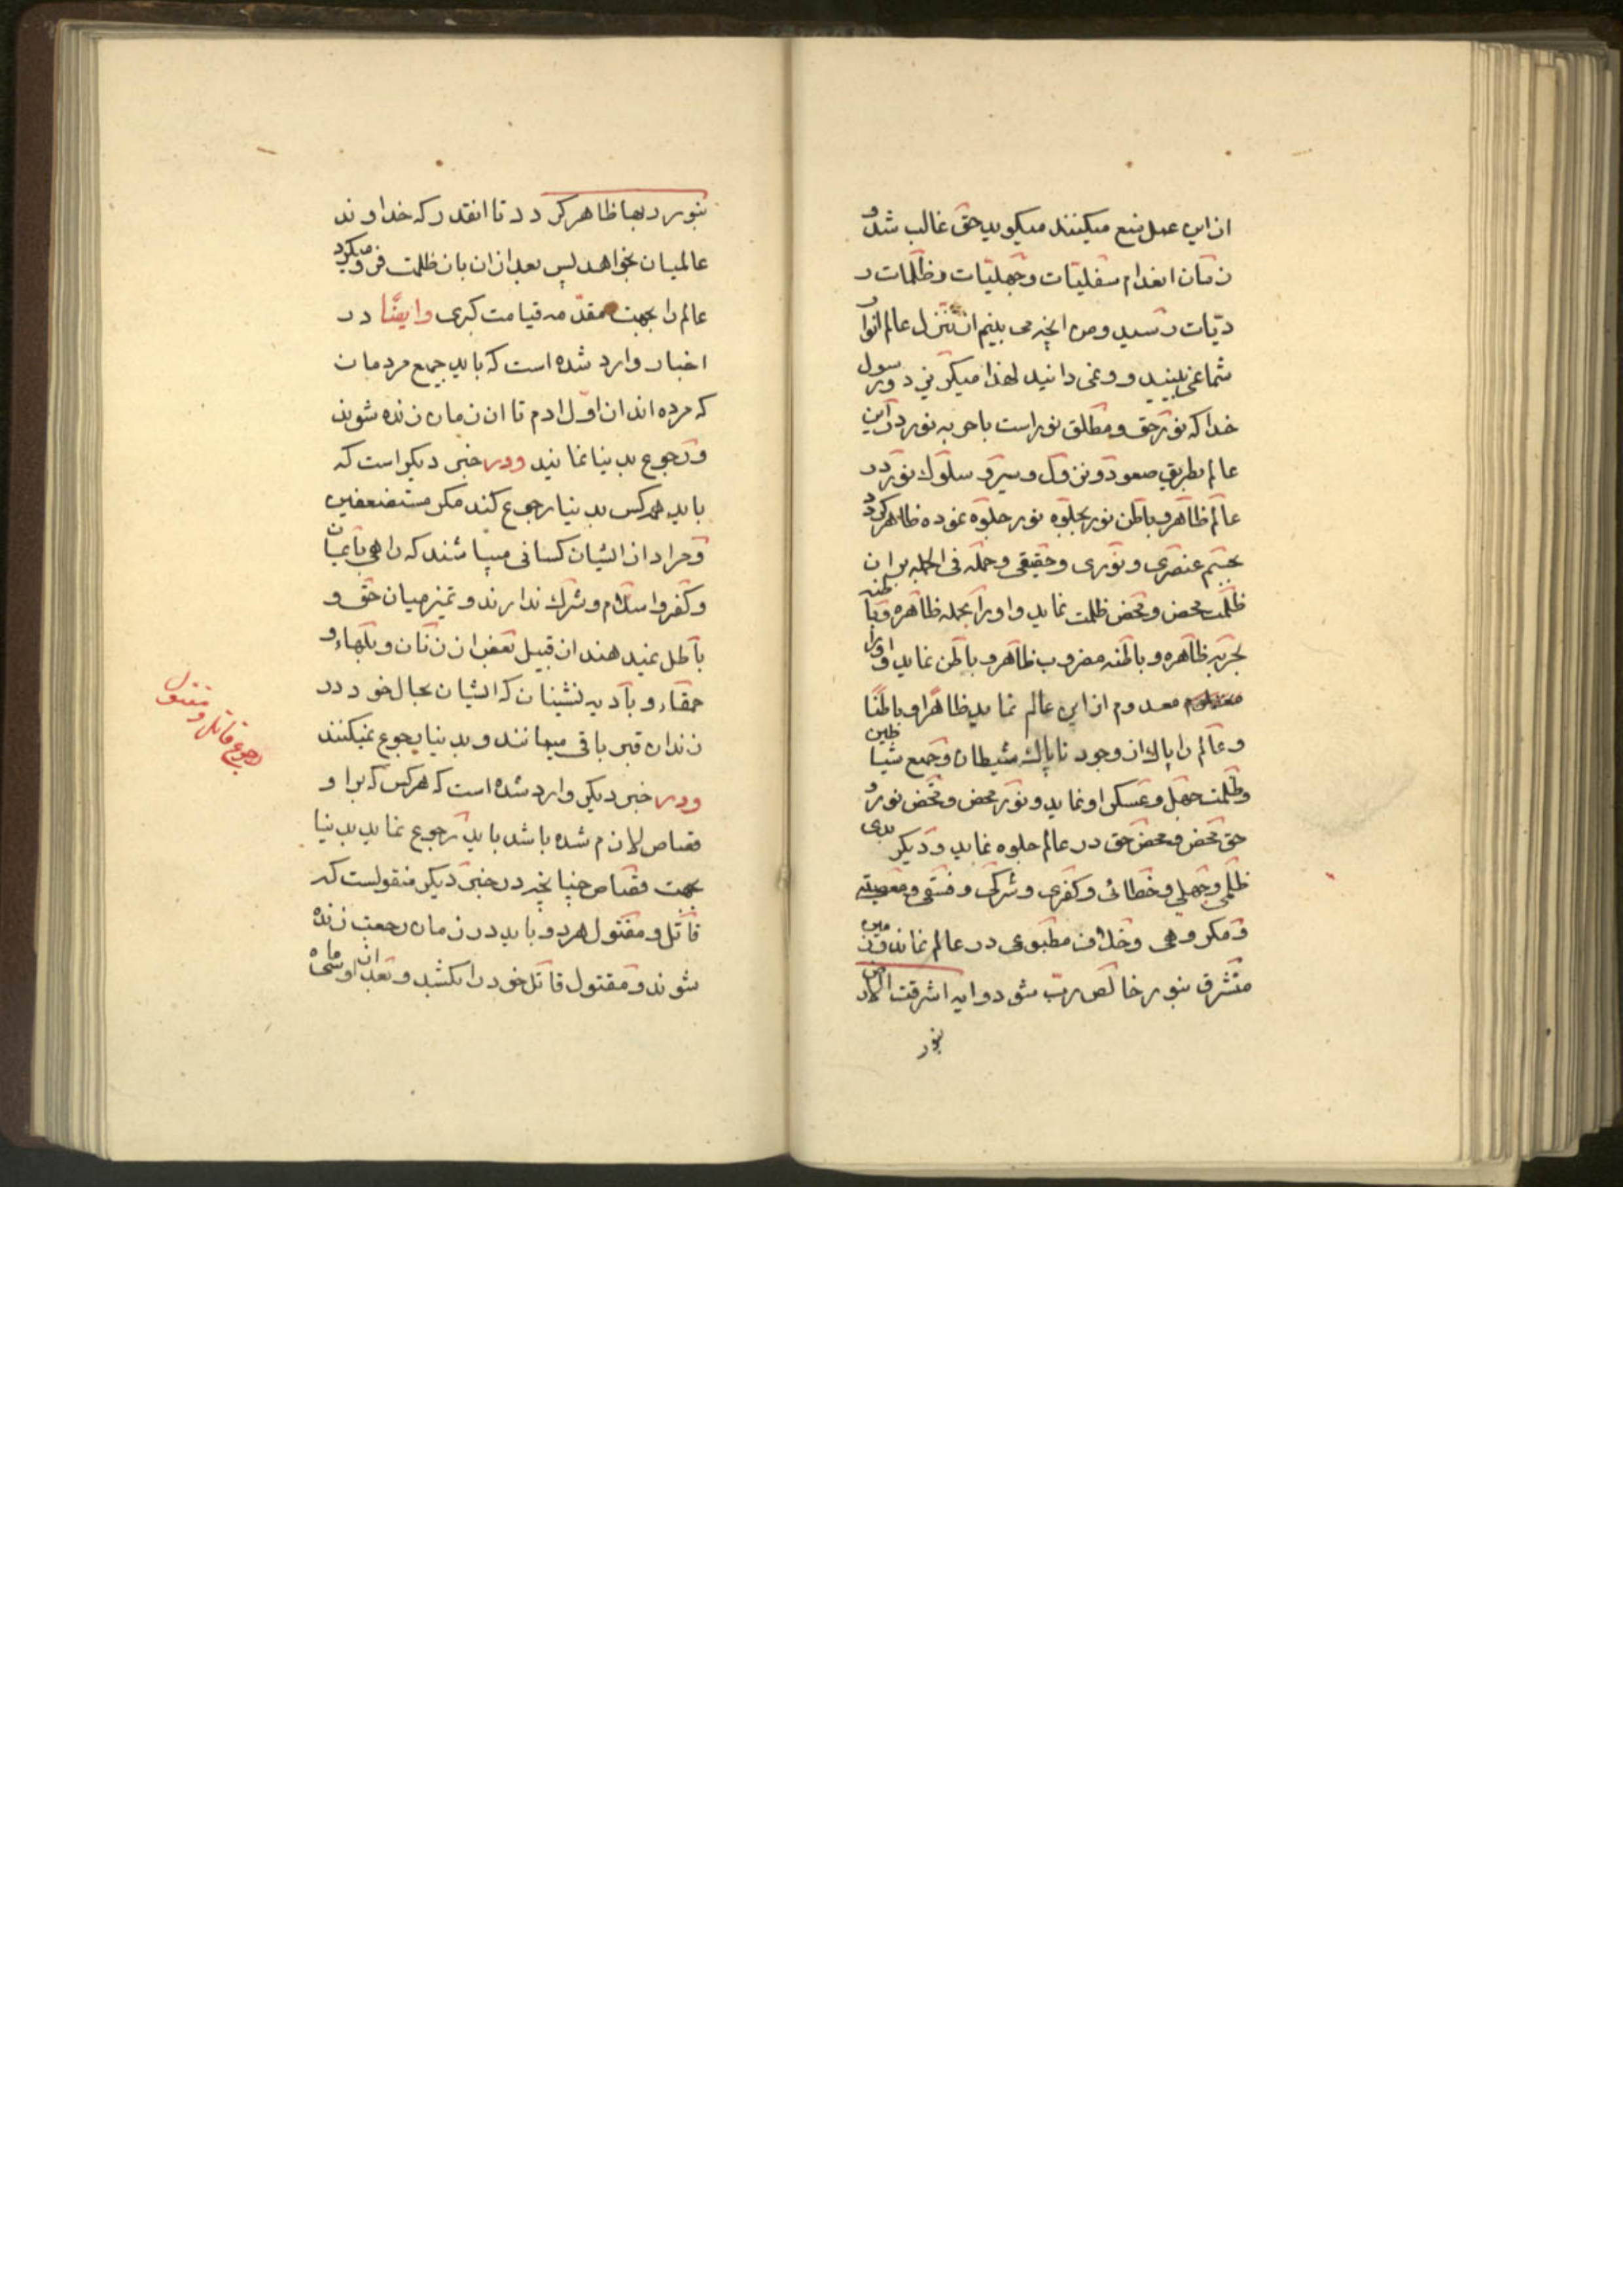 از این عمل منع میکنند میکوید حق غالب شد و
زمان انعدام سفلیات و جهلیات و ظلمات ر
دیّات رسید و من انچه می بینم از تنزل عالم انوار
شما نمی بینید و نمی دانید لهذا میکریزد و رسول
خدا که نور حق و مطلق نور است با حربه نور در این
عالم بطریق صعود و نزول و سیر و سلوک نور در
عالم ظاهر و باطن نور بجلوه نور جلوه نموده ظاهر کردد
بجسم عنصری و نوری و حقیقی و حمله فی الجمله بر ان
ظلمت محض و محض ظلمت نماید و او را بحمله ظاهره و باطنه
بحربه ظاهره و باطنه مضروب ظاهر و باطن نماید و او را
معدوم از این عالم نماید ظاهرًا و باطنًا
و عالم را پاک از وجود ناپاک شیطان و جمیع شیاطین
و ظلمت جهل و عسکر او نماید و نور محض و محض نور و
حق محض و محض حق در عالم جلوه نماید و دیکر بدی
ظلمی و جهلی و خطائی و کفری و شرکی و فسقی و معصیته
و مکروهی و خلاف مطبوعی در عالم نماند و زمین
مشرق بنور خالص ربّ شود و ایه اشرقت الارض
بنور
بنور ربها ظاهر کردد تا انقدر که خداوند
عالمیان بخواهد پس بعد از ان باز ظلمت فرو میکیرد
عالم را بجهت مقدّمه قیامت کبری وایضًا در
اخبار وارد شده است که باید جمیع مردمان
که مرده اند از اوّل ادم تا ان زمان زنده شوند
و رجوع بدنیا نمایند ودر خبر دیکر است که
باید هر کس بدنیا رجوع کند مکر مستضعفین
و مراد از ایشان کسانی میباشند که راهی بایمان
و کفر و اسلام و شرک ندارند و تمیز میان حق و
باطل نمیدهند از قبیل بعض از زنان و بلهاء و
حمقاء و بادیه نشینان که ایشان بحال خود در
زندان قبر باقی میمانند و بدنیا رجوع نمیکنند
ودر خبر دیکر وارد شده است که هر کس که بر او
قصاص لازم شده باشد باید رجوع نماید بدنیا
بجهت قصاص چنانچه در خبر دیکر منقولست که
قاتل و مقتول هر دو باید در زمان رجعت زنده
شوند و مقتول قاتل خود را بکشد و بعد از او سی ماه
رجوع قاتل و مقتول